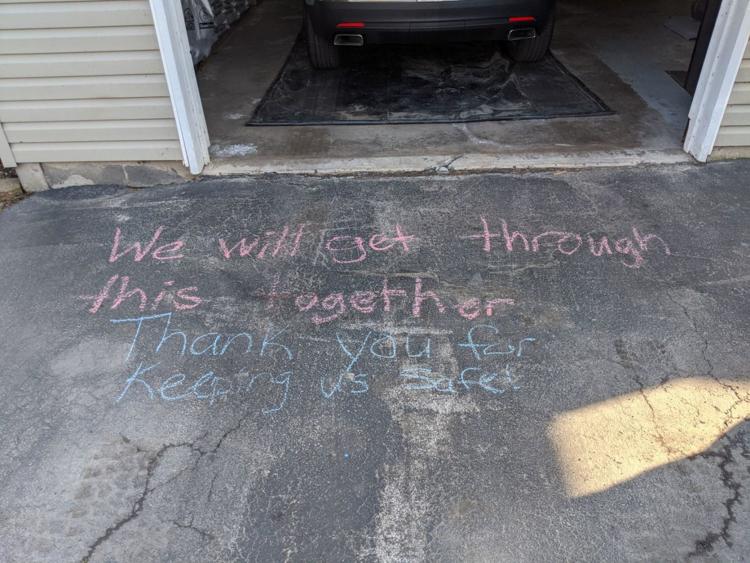 We will get through
this together
Thank you for
Keeping us Safe!